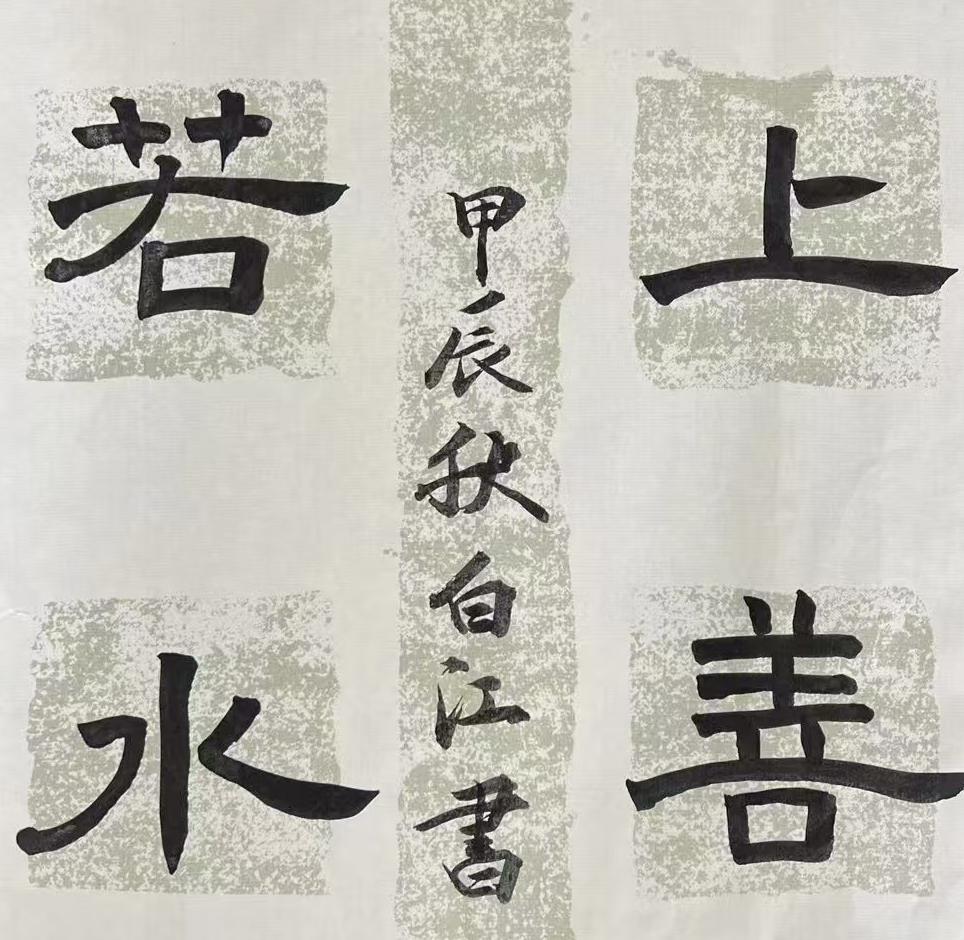 上善
若水
甲辰秋白江书